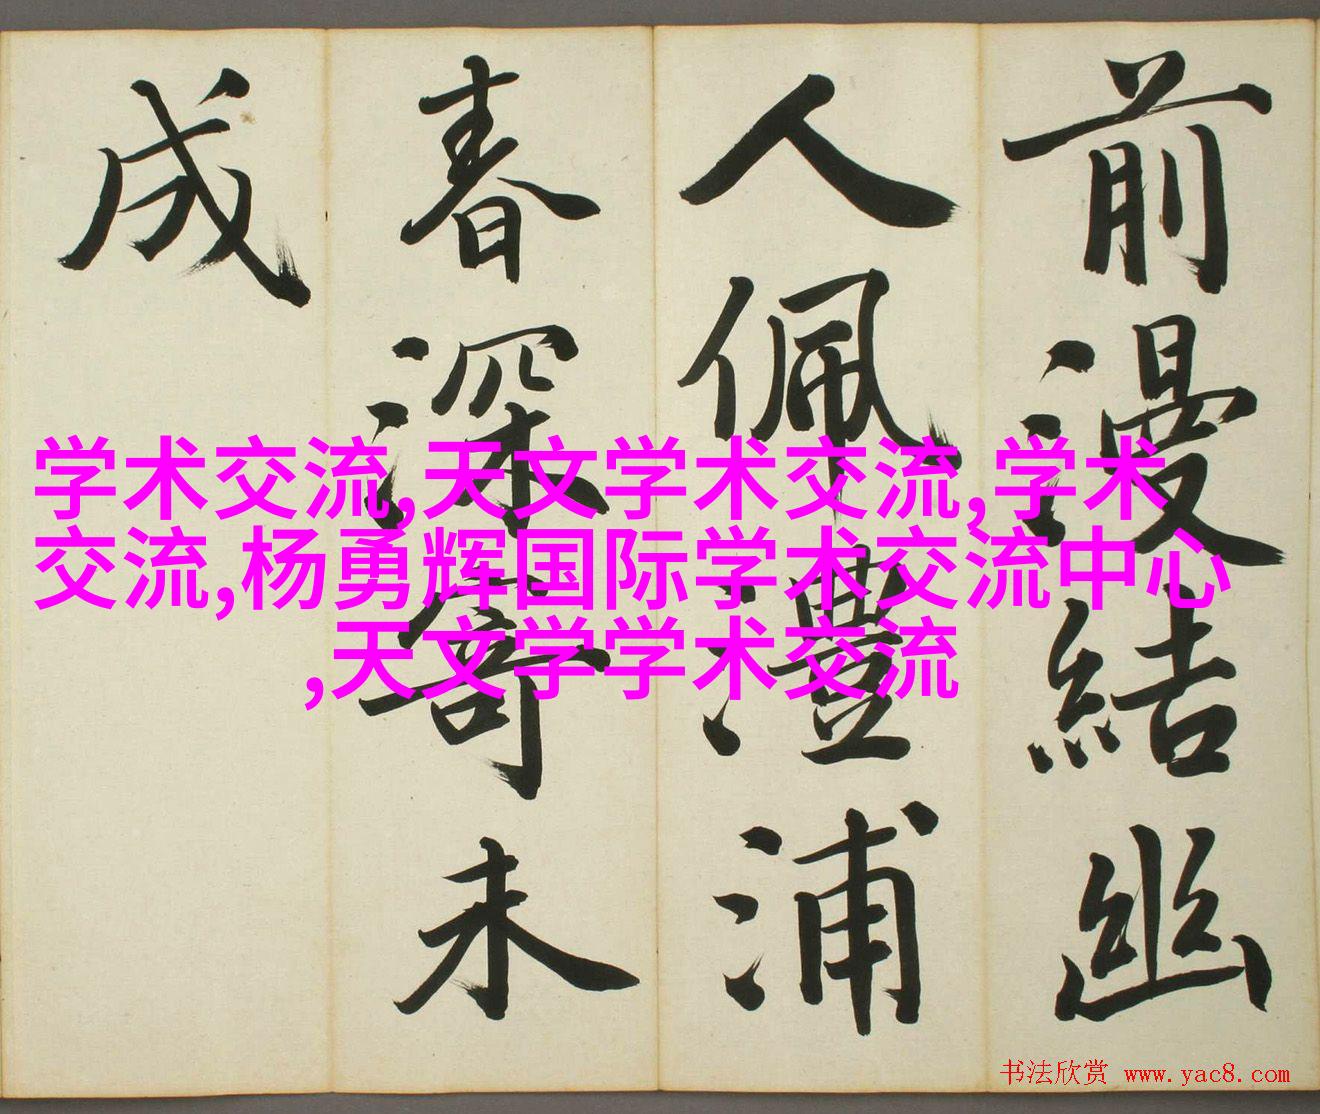 前漫結幽
人佩澧浦
春深寄未
成
学术交流,天文学术交流,学术
交流,杨勇辉国际学术交流中心
,天文学学术交流
书法欣赏 www.yac8.com